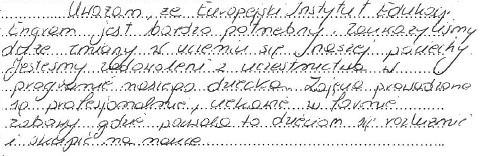 Uważam, że Europejski Instytut Edukacji
Engram jest bardzo potrzebny. Zauważyliśmy
duże zmiany w uczeniu się naszej pociechy
Jesteśmy zadowoleni z uczestnictwa w
programie naszego dziecka. Zajęcia prowadzone
są profesjonalnie, ciekawie w formie
zabawy gdzie pozwala to dzieciom się rozluźnić
i skupić na nauce